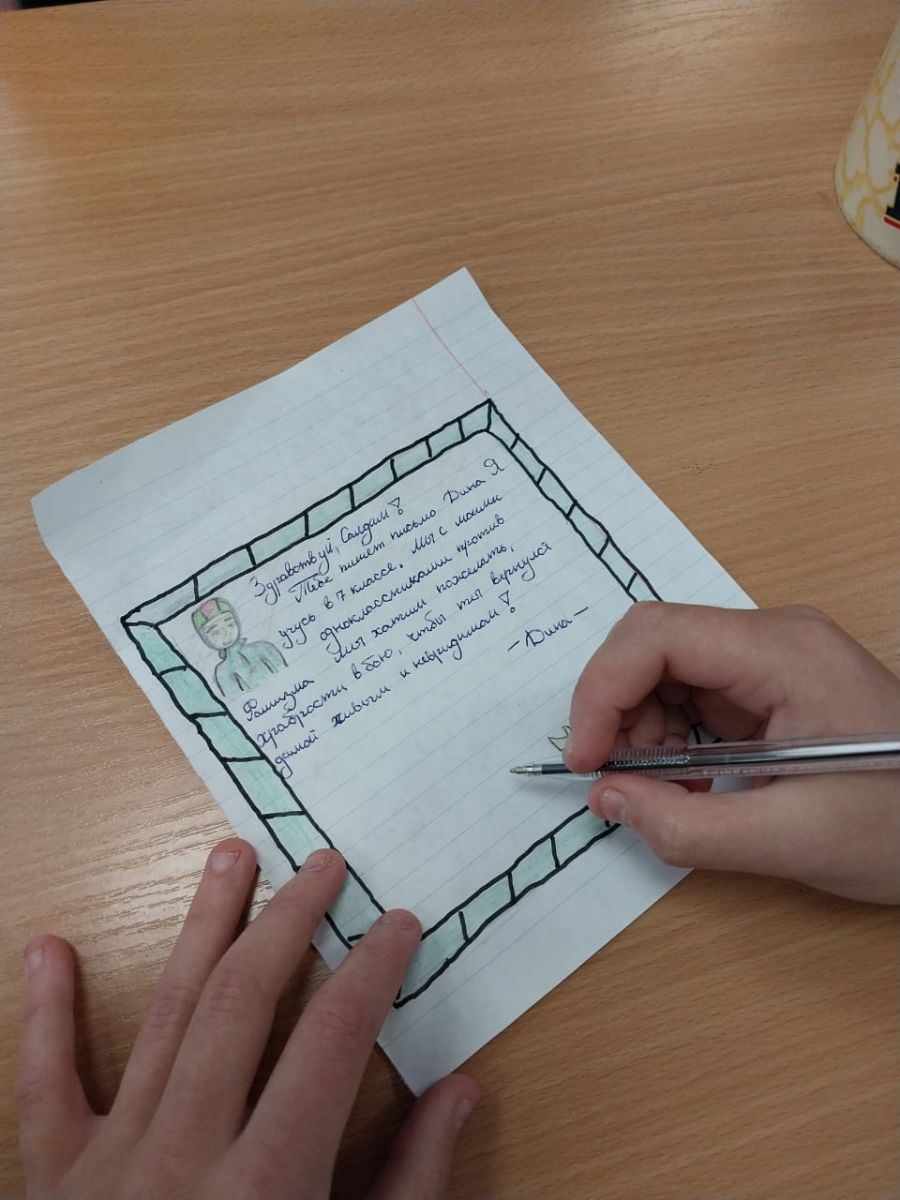 Здравствуй, Солдат!
Тебе пишет письмо Дина Я
учусь в 7 классе. Мы с моими
одноклассниками против
Фашизма Мы хотим пожелать,
храбрости в бою, чтобы ты вернулся
домой живым и невридимым!
-Дина-